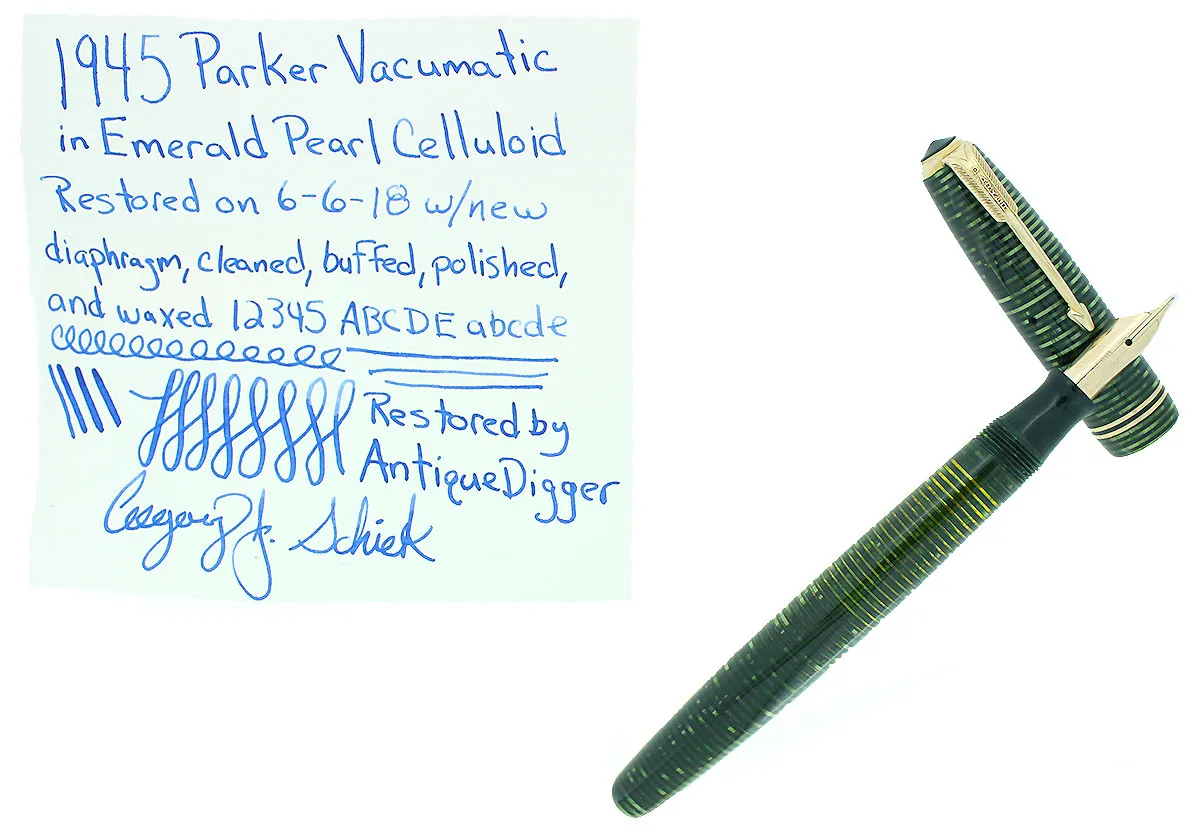 1945 Parker Vacumatic
in Emerald Pearl Celluloid
Restored on 6-6-18 w/new
diaphragm, cleaned, buffed, polished,
and waxed 12345 ABCDE abcde
Restored by
AntiqueDigger
Gregory J. Schiek